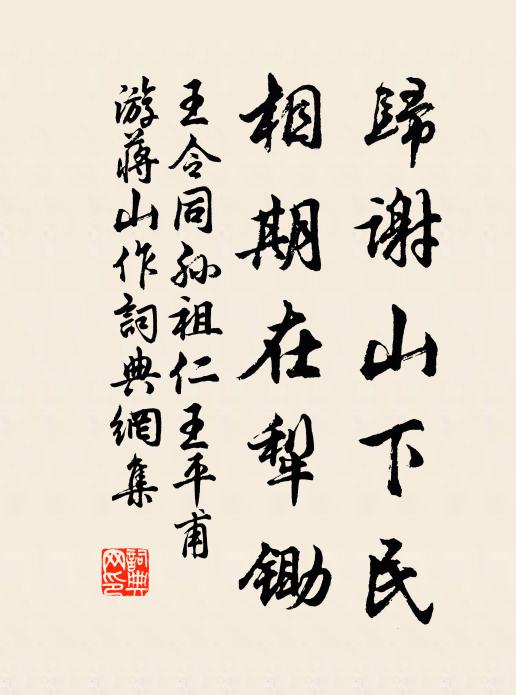 歸謝山下民
相期在犁鋤
王令同孙祖仁王平甫
游蔣山作詞典網集
詞典网印